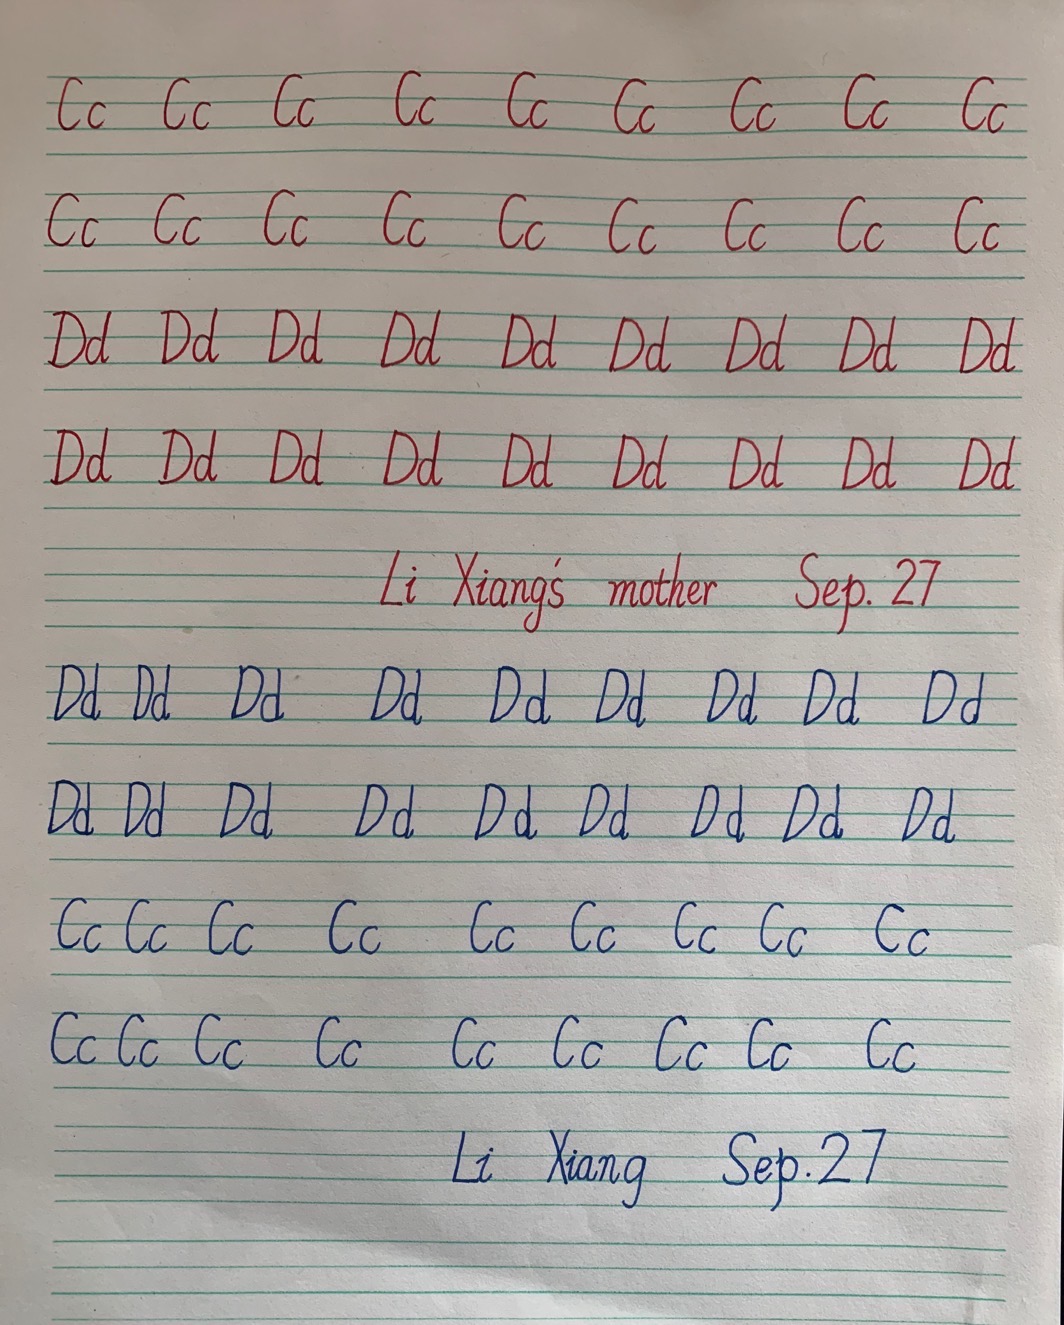 Cc Cc Cc Cc Cc Cc Cc Cc Cc
Cc Cc Cc Cc Cc Cc Cc Cc Cc
Dd Dd Dd Dd Dd Dd Dd Dd Dd
Dd Dd Dd Dd Dd Dd Dd Dd Dd
Li Xiang's mother Sep. 27
Dd Dd Dd Dd Dd Dd Dd Dd Dd
Dd Dd Dd Dd Dd Dd Dd Dd Dd
Cc Cc Cc Cc Cc Cc Cc Cc Cc
Cc Cc Cc Cc Cc Cc Cc Cc Cc
Li Xiang Sep. 27